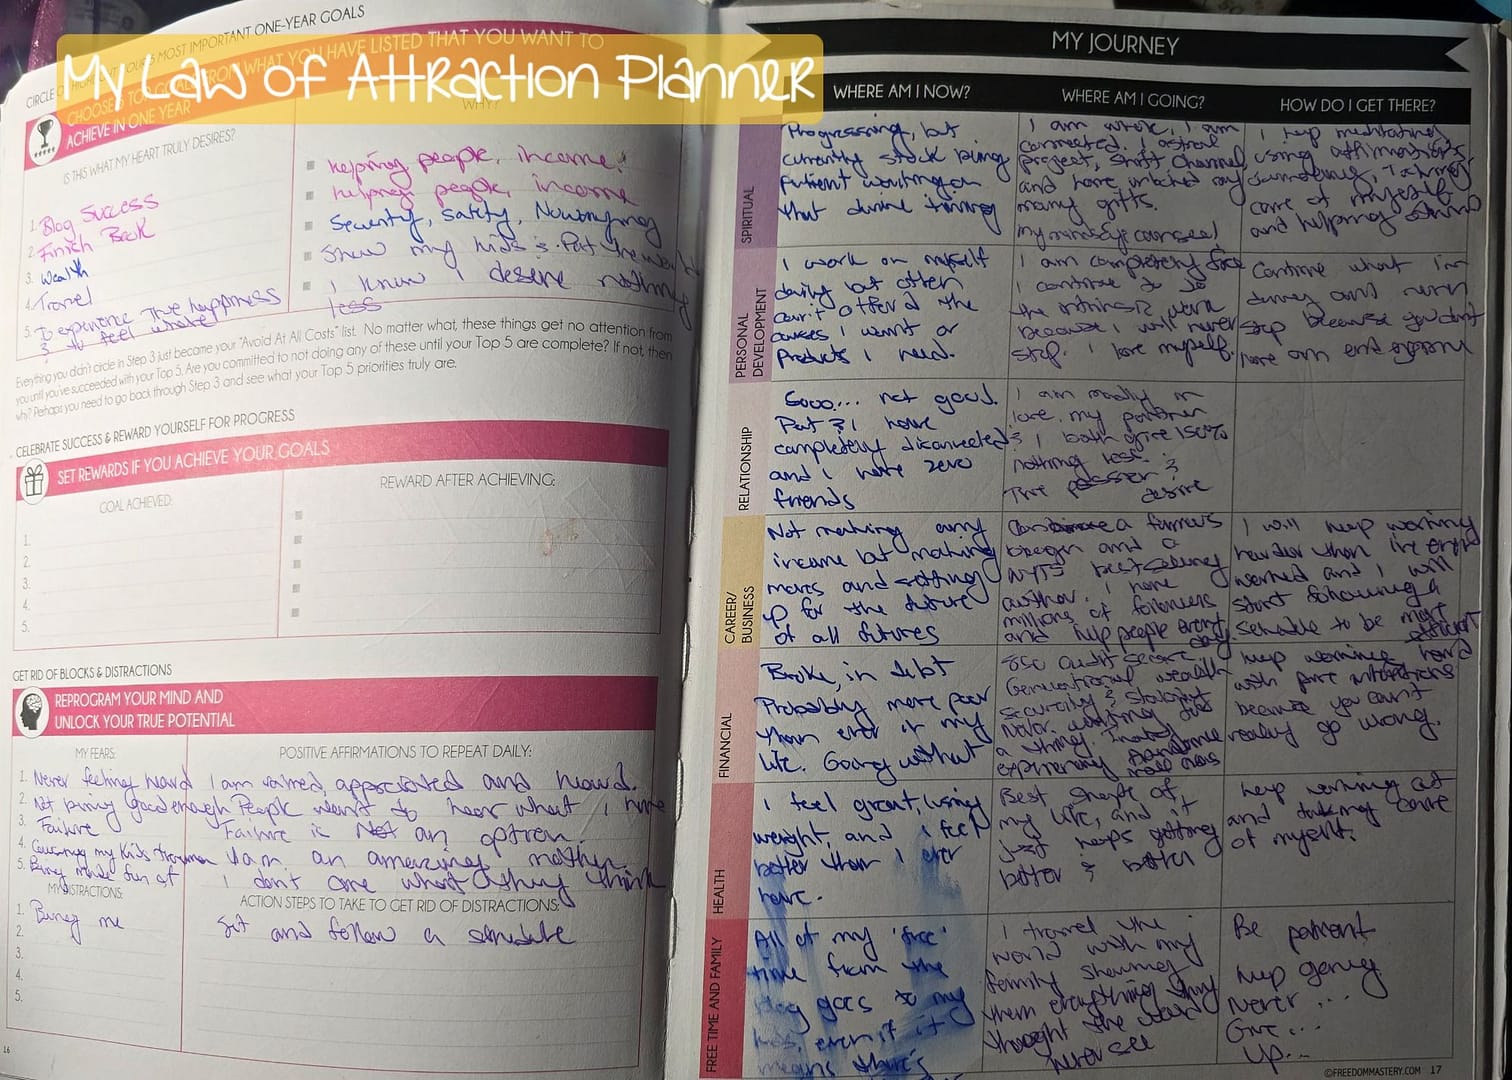 My Law of Attraction Planner
MOST IMPORTANT ONE-YEAR GOALS
FROM WHAT YOU HAVE LISTED THAT YOU WANT TO
ACHIEVE IN ONE YEAR
WHY?
IS THIS WHAT MY HEART TRULY DESIRES?
1. Blog Success
helping people, income!
2. Finish Book
helping people, income
3. Wealth
Security, Safety,
4. Travel
Show my kids
5. To experience True happiness
I know I desire nothing
less
Everything you didn't circle in Step 3 just became your "Avoid At All Costs" list. No matter what, these things get no attention from
you until you've succeeded with your Top 5. Are you committed to not doing any of these until your Top 5 are complete? If not, then
why? Perhaps you need to go back through Step 3 and see what your Top 5 priorities truly are.
CELEBRATE SUCCESS & REWARD YOURSELF FOR PROGRESS
SET REWARDS IF YOU ACHIEVE YOUR GOALS
GOAL ACHIEVED:
REWARD AFTER ACHIEVING:
1.
2.
3.
4.
5.
GET RID OF BLOCKS & DISTRACTIONS
REPROGRAM YOUR MIND AND
UNLOCK YOUR TRUE POTENTIAL
MY FEARS:
POSITIVE AFFIRMATIONS TO REPEAT DAILY:
1. Never feeling heard
I am valued, appreciated and heard.
2. Not being good enough
People want to hear what I have
3. Failure
Failure is Not an option.
4. Causing my kids trauma
I am an amazing mother.
5. Being made fun of
I don't care what they think
MY DISTRACTIONS:
ACTION STEPS TO TAKE TO GET RID OF DISTRACTIONS:
1. Being me
Set and follow a schedule
2.
3.
4.
5.
16
MY JOURNEY
WHERE AM I NOW?
WHERE AM I GOING?
HOW DO I GET THERE?
SPIRITUAL
Progressing, but
currently stuck being
patient waiting on
that divine timing
I am whole, I am
connected. I astral
project, shift, channel,
and have unlocked my
many gifts.
I keep meditating
using affirmations
Taking
care of myself
and helping others
PERSONAL
DEVELOPMENT
I work on myself
daily but often
can't afford the
courses I want or
Products I need.
I am completely
I continue to do
the work
because I will never
stop. I love myself.
Continue what I'm
doing and never
stop because you don't
have an end
RELATIONSHIP
Sooo... not good.
Pat & I have
completely disconnected
and I have zero
friends
I am madly in
love. my partner
& I both give 150%
nothing less.
True passion &
desire
CAREER/
BUSINESS
Not making any
income but making
moves and setting
up for the future
of all futures
a famous
and a
NYT's best selling
author. I have
millions of followers
and help people every
day.
I will keep working
harder than I've ever
worked and I will
start following a
schedule to be more
efficient
FINANCIAL
Broke, in debt
Probably more poor
than ever in my
life. Going without
Generational wealth
security & stability
Never wanting for
a thing.
keep working hard
with pure intentions
because you can't
really go wrong.
HEALTH
I feel great, losing
weight, and I feel
better than I ever
have.
Best shape of
my life, and it
just keeps getting
better & better
keep working out
and taking care
of myself.
FREE TIME AND FAMILY
All of my 'free'
time from the
blog goes to my
kids, even if it
means there's
I travel the
world with my
family showing
them everything they
thought they would
never see
Be patient
keep going
Never...
Give...
Up...
©FREEDOMMASTERY.COM 17